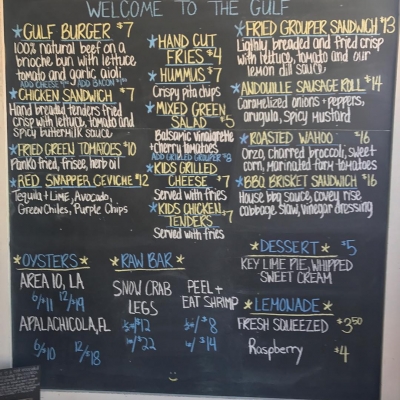 WELCOME TO THE GULF
GULF BURGER $7
100% natural beef on a
brioche bun with lettuce
tomato and garlic aioli
ADD CHEESE ADD BACON
CHICKEN SANDWICH $7
Hand breaded tenders fried
crisp with lettuce, tomato and
spicy buttermilk sauce
FRIED GREEN TOMATOES $10
Panko fried, frisee, herb oil
RED SNAPPER CEVICHE $12
Tequila + Lime, Avocado,
Green Chiles, Purple Chips
HAND CUT
FRIES $4
HUMMUS $7
Crispy pita chips
MIXED GREEN
SALAD $5
Balsamic vinaigrette
+cherry tomatoes
ADD GRILLED GROUPER $8
KIDS GRILLED
CHEESE $7
Served with fries
KIDS CHICKEN
TENDERS $7
Served with fries
FRIED GROUPER SANDWICH $13
Lighly breaded and fried crisp
with lettuce, tomato and our
lemon dill sauce
ANDOUILLE SAUSAGE ROLL $14
Caramelized onions + peppers,
arugula, Spicy Mustard
ROASTED WAHOO $16
Orzo, charred broccoli, sweet
corn, marinated farm tomatoes
BBQ BRISKET SANDWICH $16
House bbq sauce, covey rise
cabbage slaw, vinegar dressing
OYSTERS
AREA 10, LA
6/$11 12/$19
APALACHICOLA, FL
6/$10 12/$18
RAW BAR
SNOW CRAB
LEGS
$12
$22
PEEL +
EAT SHRIMP
$8
$14
DESSERT $5
KEY LIME PIE, WHIPPED
SWEET CREAM
LEMONADE
FRESH SQUEEZED $3.50
Raspberry $4